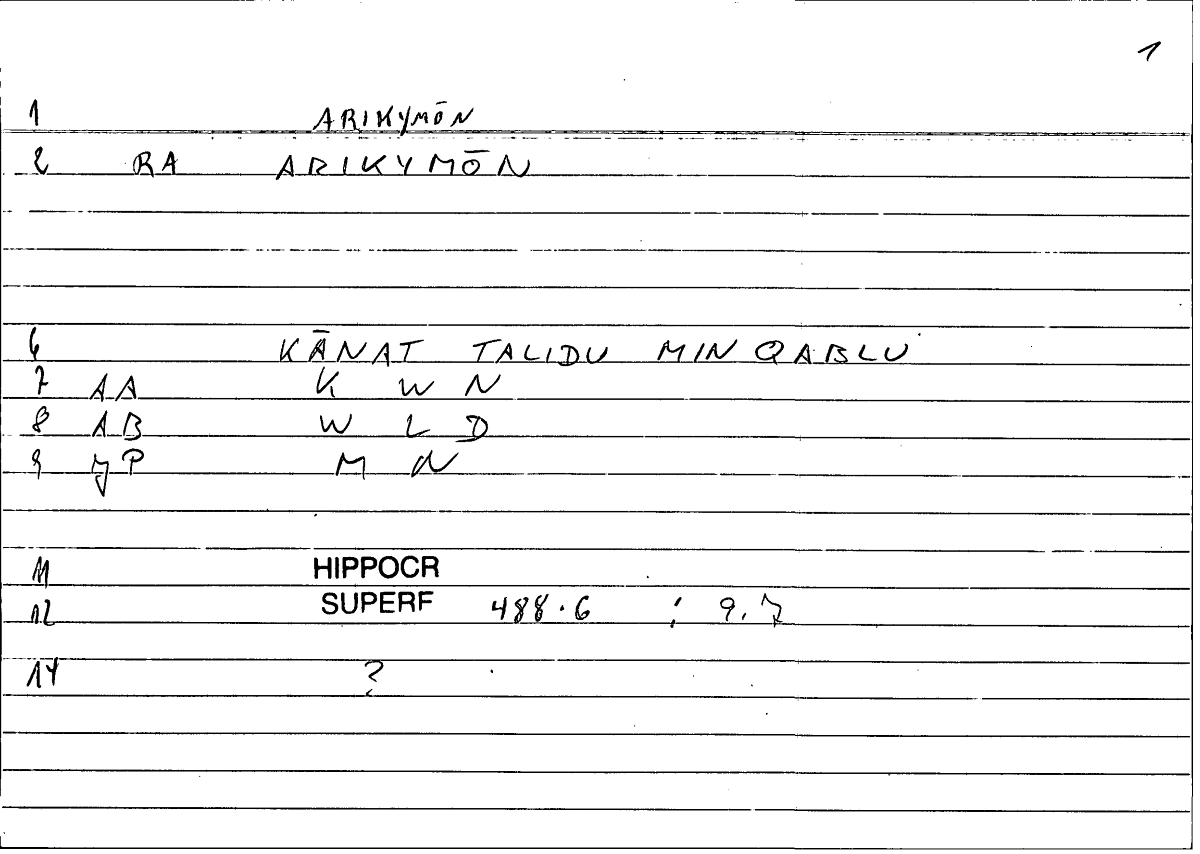 1
1 ARIKYMŌN
2 RA ARIKYMŌN
6 KĀNAT TALIDU MIN QABLU
7 AA K W N
8 AB W L D
9 JP M N
11 HIPPOCR
12 SUPERF 488.6 ; 9.7
14 ?